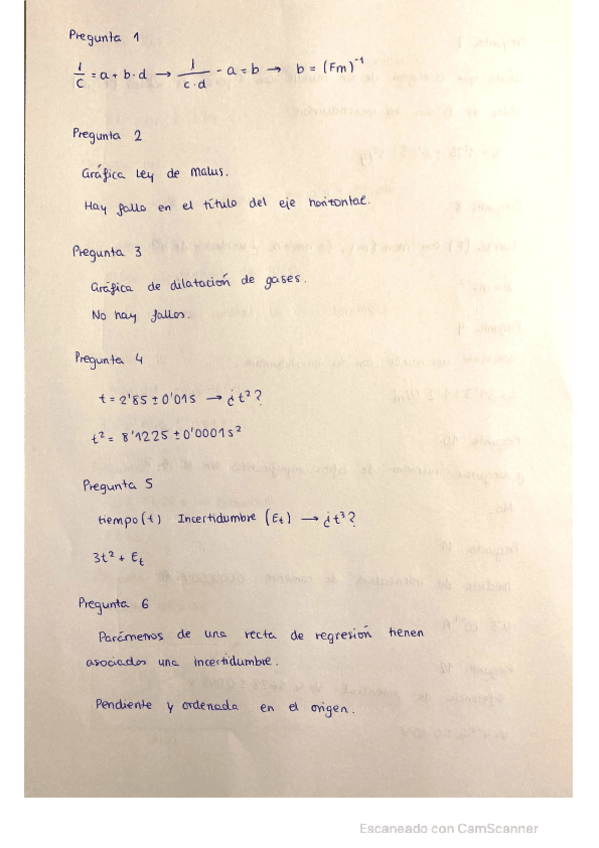 Pregunta 1
1/C = a + b·d → 1/(c·d) - a = b → b = (Fm)⁻¹
Pregunta 2
Gráfica Ley de Malus.
Hay fallo en el título del eje horizontal.
Pregunta 3
Gráfica de dilatación de gases.
No hay fallos.
Pregunta 4
t = 2'85 ± 0'01s → ¿t²?
t² = 8'1225 ± 0'0001s²
Pregunta 5
tiempo (t) Incertidumbre (Et) → ¿t³?
3t² + Et
Pregunta 6
Parámetros de una recta de regresión tienen
asociados una incertidumbre.
Pendiente y ordenada en el origen.
Escaneado con CamScanner